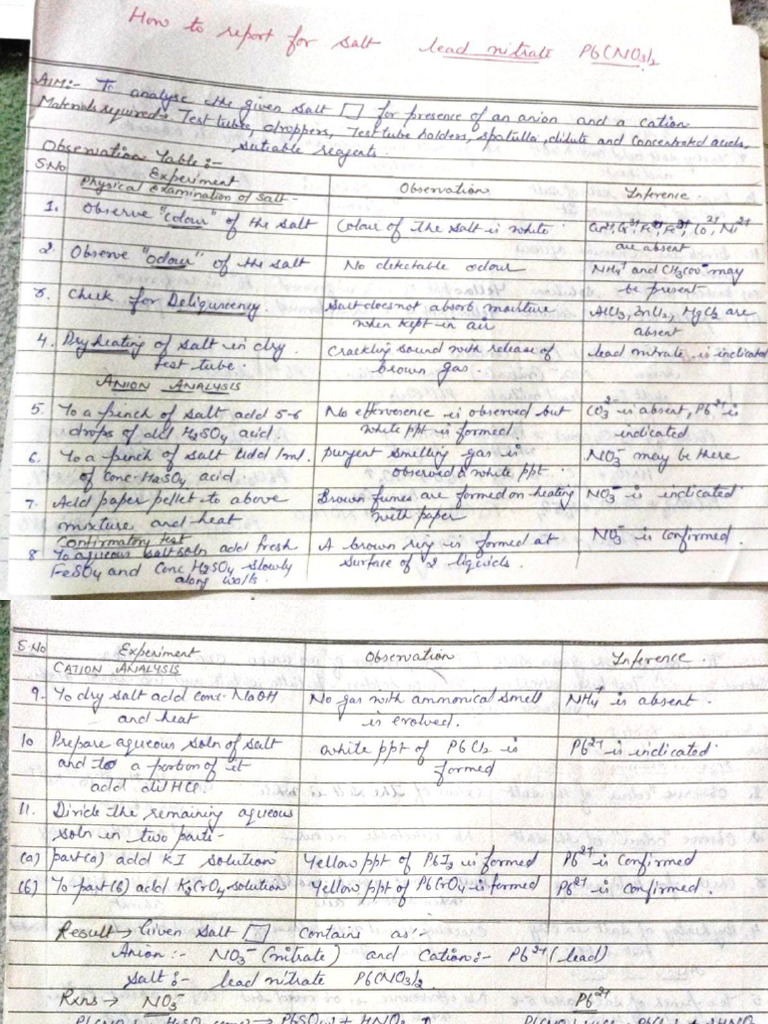 How to report for salt lead nitrate Pb(NO3)2
AIM:- To analyse the given salt □ for presence of an anion and a cation
Materials required- Test tube, droppers, Test tube holders, spatulla, dilute and concentrated acids,
sutiable reagents.
Observation Table:-
S.No Experiment Observation Inference.
Physical Examination of salt-
1. Observe "colour" of the salt Colour of the salt is white Fe2+, Fe3+, Co2+, Ni2+
are absent
2. Observe "odour" of the salt No detectable odour NH4+ and CH3COO- may
be present
3. Check for Deliquncency. Salt does not absorb moisture AlCl3, ZnCl2, MgCl2 are
when kept in air absent
4. Dry heating of salt in dry. Crackling sound with release of lead nitrate is indicated
test tube. brown gas
ANION ANALYSIS
5. To a pinch of salt add 5-6 No effervesence is observed but CO3 2- is absent, Pb2+ is
drops of dil H2SO4 acid. white ppt is formed indicated
6. To a pinch of salt add 1ml. pungent smelling gas is NO3- may be there
of conc. H2SO4 acid. observed & white ppt.
7. Add paper pellet to above Brown fumes are formed on heating NO3- is indicated
mixture and heat with paper
Confirmatory test
8 To aqueous salt soln add fresh A brown ring is formed at NO3- is confirmed.
FeSO4 and Conc H2SO4 slowly surface of 2 liquids.
along walls.
S.No Experiment Observation Inference.
CATION ANALYSIS
9. To dry salt add conc. NaOH No gas with ammonical smell NH4+ is absent.
and heat is evolved.
10 Prepare aqueous soln of salt white ppt of PbCl2 is Pb2+ is indicated
and to a portion of it formed
add dil HCl
11. Divide the remaining aqueous
soln in two parts-
(a) part(a) add KI solution Yellow ppt of PbI2 is formed Pb2+ is confirmed
(b) To part(b) add K2CrO4 solution Yellow ppt of PbCrO4 is formed Pb2+ is confirmed.
Result → Given Salt □ contains as:-
Anion:- NO3- (nitrate) and Cation:- Pb2+ (lead)
Salt:- lead nitrate Pb(NO3)2
Rxns → NO3- Pb2+